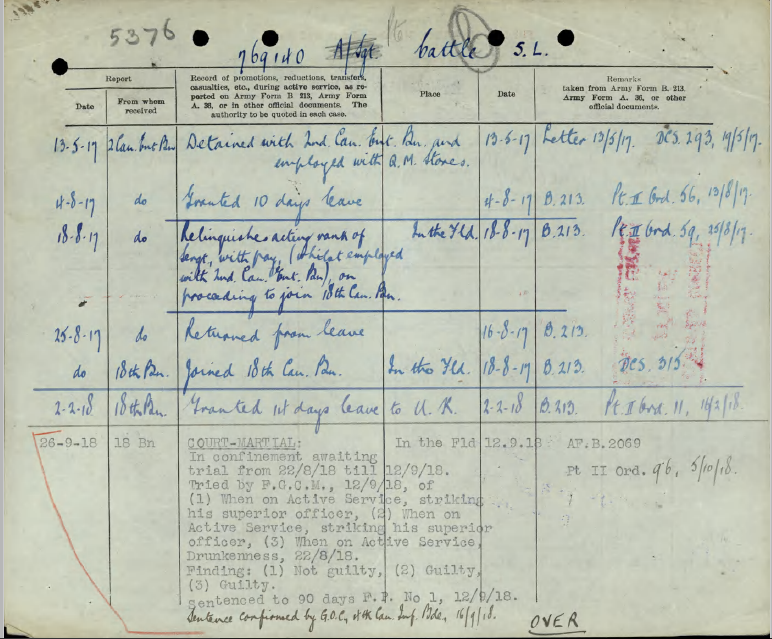 5376
769140 A/Sgt. Battle S.L.
Report
Date
From whom received
Record of promotions, reductions, transfers,
casualties, etc., during active service, as re-
ported on Army Form B 213, Army Form
A. 36, or in other official documents. The
authority to be quoted in each case.
Place
Date
Remarks
taken from Army Form B. 213,
Army Form A. 36, or other
official documents.
13-5-17 2 Can. Ent Bn Detained with 2nd. Can. Ent. Bn. and 13-5-17 Letter 13/5/17. DCS. 293, 19/5/17.
employed with Q.M. Stores.
4-8-17 do Granted 10 days leave 4-8-17 B.213. Pt. II Ord. 56, 13/8/17.
18-8-17 do Relinquishes acting rank of In the Fld. 18-8-17 B.213. Pt. II Ord. 59, 25/8/17.
Sergt, with pay, (whilst employed
with 2nd. Can. Ent. Bn), on
proceeding to join 18th Can. Bn.
25-8-17 do Returned from leave 16-8-17 B.213.
do 18th Bn. Joined 18th Can. Bn. In the Fld. 18-8-17 B.213. DCS. 315.
2-2-18 18th Bn. Granted 14 days leave to U.K. 2-2-18 B.213. Pt. II Ord. 11, /2/18.
26-9-18 18 Bn COURT-MARTIAL: In the Fld 12.9.18 AF.B.2069
In confinement awaiting
trial from 22/8/18 till 12/9/18. Pt II Ord. 96, 5/10/18.
Tried by F.G.C.M., 12/9/18, of
(1) When on Active Service, striking
his superior officer, (2) When on
Active Service, striking his superior
officer, (3) When on Active Service,
Drunkenness, 22/8/18.
Finding: (1) Not guilty, (2) Guilty,
(3) Guilty.
Sentenced to 90 days F.P. No 1, 12/9/18.
Sentence confirmed by G.O.C, 4th Can. Inf. Bde, 16/9/18.
OVER